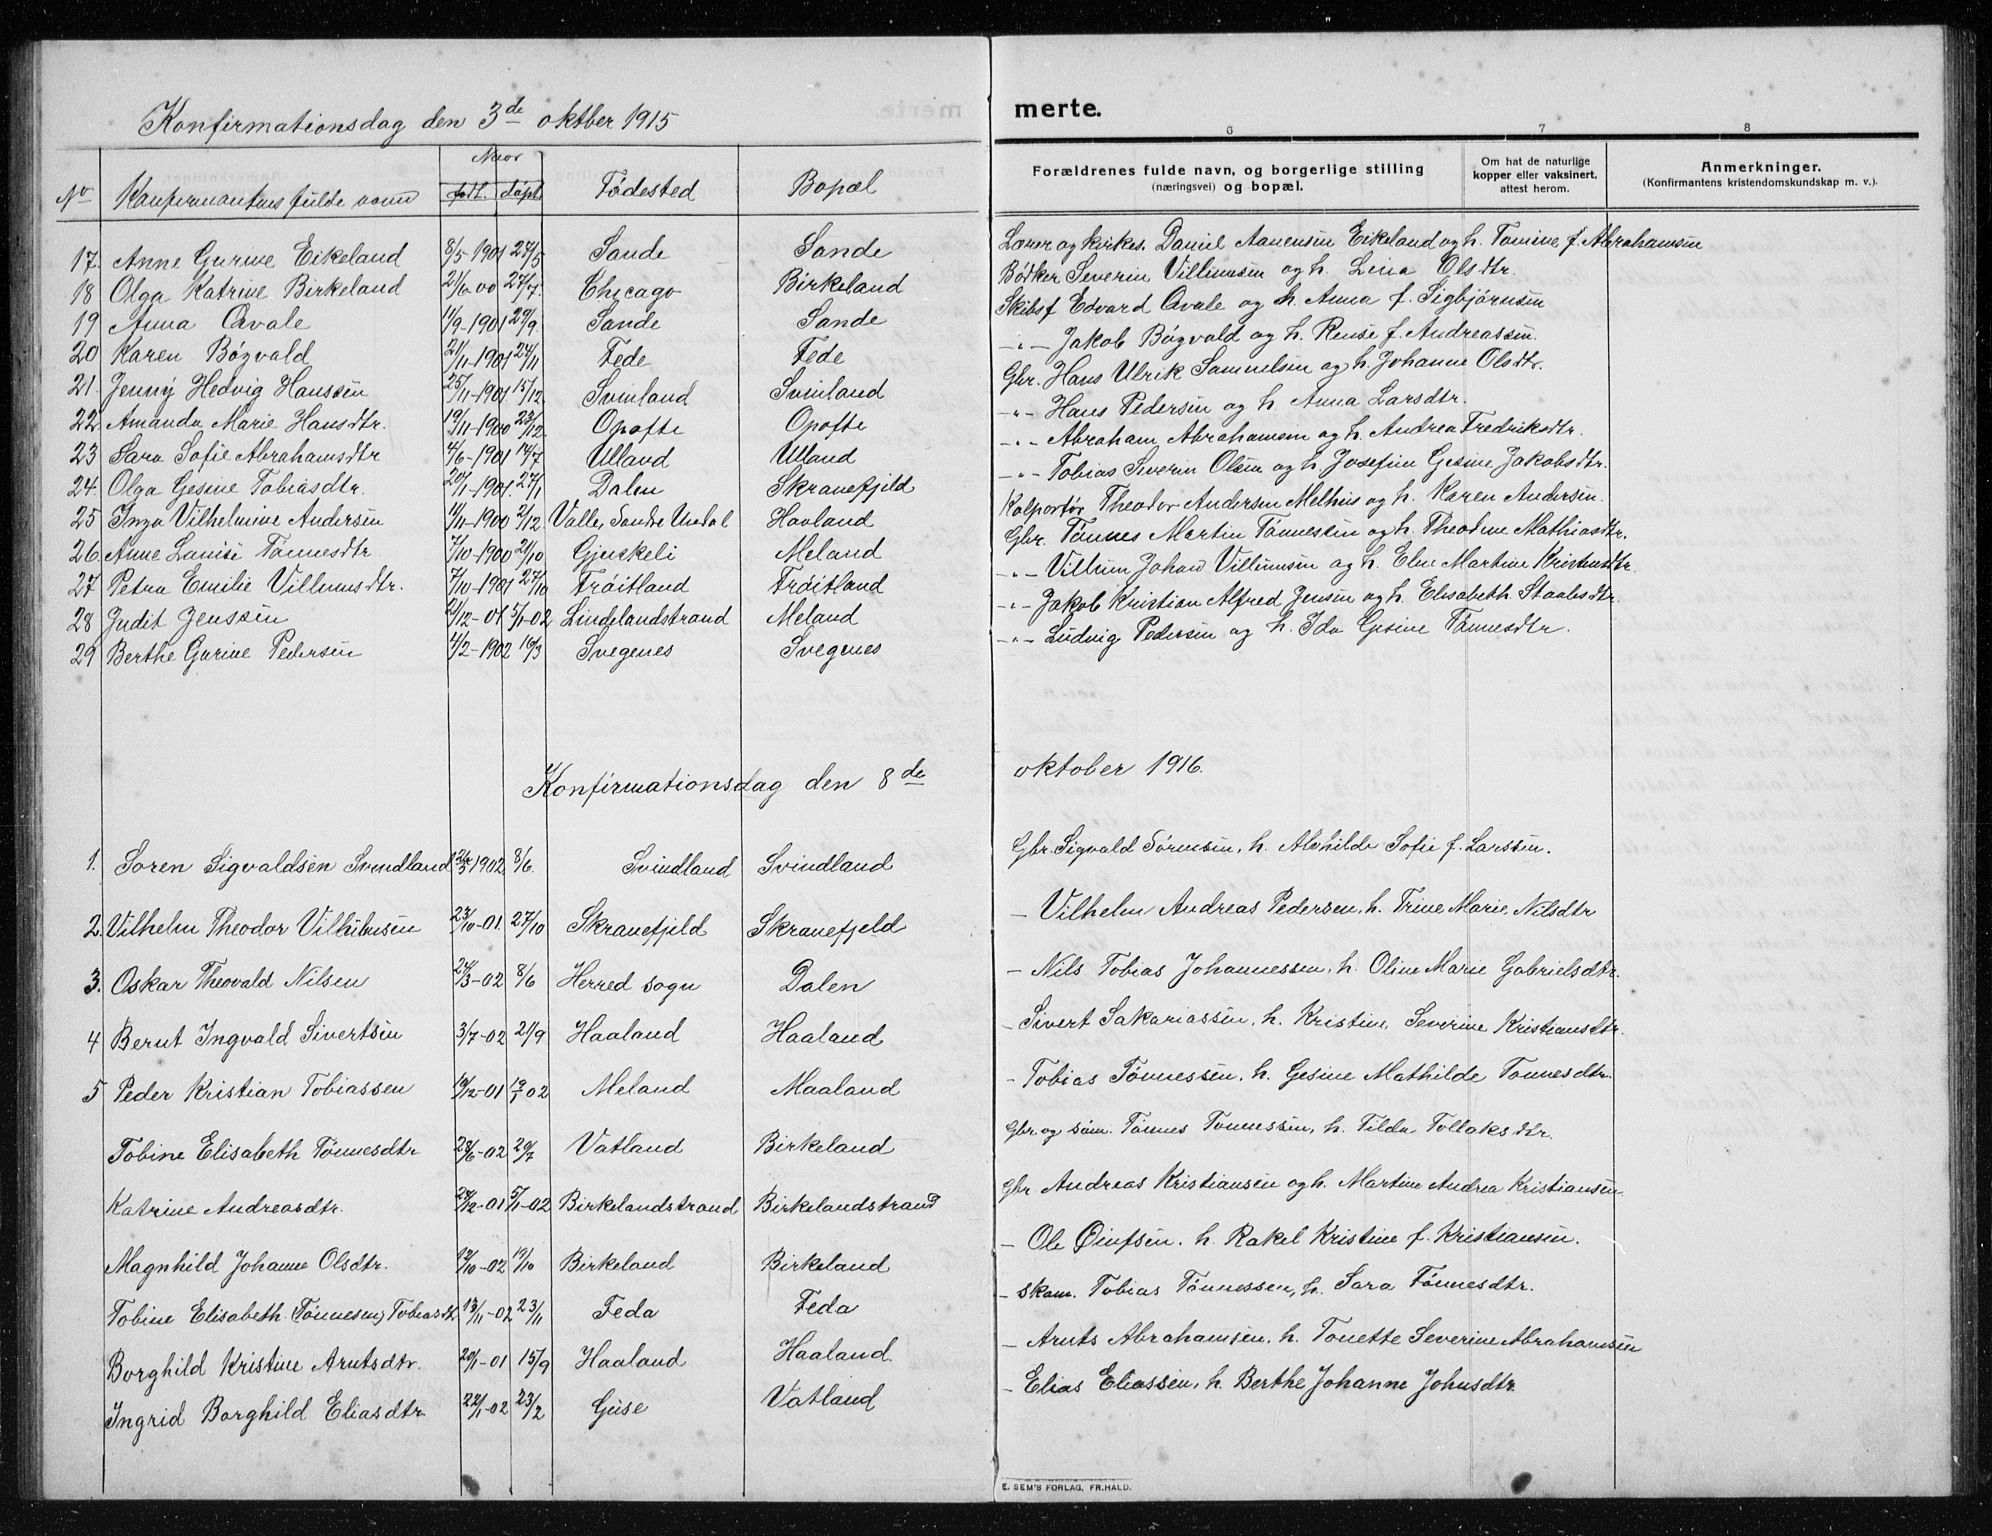 Konfirmationsdag den 3de oktber 1915
merte.
6 7 8
No Konfirmantens fulde navn Naar født. døpt Fødested Bopæl Forældrenes fulde navn, og borgerlige stilling (næringsvei) og bopæl. Om hat de naturlige kopper eller vaksinert, attest herom. Anmerkninger. (Konfirmantens kristendomskundskap m. v.).
17. Anne Gurine Eikeland 8/5-1901 27/5 Sande Sande Lærer og kirkes. Daniel Aanensen Eikeland og h. Tomine f. Abrahamsen
18 Olga Katrine Birkeland 21/6 00 27/7. Chicago Birkeland Bødker Severin Villumsen og h. Lina Olsdtr.
19 Anna Qvale 11/9-1901 29/9 Sande Sande Skibsf Edvard Qvale og h. Anna f. Sigbjørnsen
20 Karen Bøgvald 21/11-1901 24/11 Fede Fede -"- Jakob Bøgvald og h. Rense f. Andreassen.
21. Jenny Hedvig Hanssen 25/11-1901 15/12 Svinland Svinland Gbr. Hans Ulrik Samuelsen og h. Johanne Olsdtr.
22. Amanda Marie Hansdtr. 19/11-1900 23/12. Opofte Opofte -"- Hans Pedersen og h. Anna Larsdtr.
23 Sara Sofie Abrahamsdtr 4/6-1901 14/7 Ulland Ulland -"- Abraham Abrahamsen og h. Andrea Fredriksdtr.
24. Olga Gesine Tobiasdtr. 20/1-1901. 27/1 Dalen Skranefjeld -"- Tobias Severin Olsen og h. Josefine Gesine Jakobsdtr.
25 Inga Vilhelmine Andersen 11/11-1900 2/12 Valle, Søndre Undal Haaland Kolportør Theodor Andersen Melhus og h. Karen Andersen.
26. Anne Lanise Tønnesdtr. 7/10-1900 21/10 Gjuskeli Meland Gbr. Tønnes Martin Tønnessen og h. Theodine Mathiasdtr.
27 Petra Emilie Villumsdtr. 7/10-1901 27/10 Frøitland Frøitland -"- Villum Johan Villumsen og h. Elen Martine Kristensdtr.
28 Judit Jenssen 21/12-01 5/1-02 Lindelandstrand Meland -"- Jakob Kristian Alfred Jensen og h. Elisabeth Staalesdtr.
29 Berthe Gurine Pedersen 4/2-1902 16/3 Svegenes Svegenes -"- Ludvig Pedersen og h. Ida Gesine Tønnesdtr.
Konfirmationsdag den 8de oktober 1916.
1. Søren Sigvaldsen Svindland 1902 8/6. Svindland Svindland Gbr. Sigvald Sørensen, h. Alvhilde Sofie f. Larssen.
2. Vilhelm Theodor Vilhelmsen 23/10-01. 27/10 Skranefjeld Skranefjeld - Vilhelm Andreas Pedersen, h. Trine Marie Nilsdtr
3. Oskar Theovald Nilsen 24/3-02 8/6 Herred sogn Dalen - Nils Tobias Johannessen, h. Oline Marie Gabrielsdtr.
4 Bernt Ingvald Sivertsen 3/7-02 21/9 Haaland Haaland - Sivert Sakariassen, h. Kristine Severine Kristiansdtr.
5 Peder Kristian Tobiassen 19/12-01 19/1 02 Meland Maaland - Tobias Tønnessen, h. Gesine Mathilde Tønnesdtr.
Tobine Elisabeth Tønnesdtr 28/6-02 20/7 Vatland Birkeland Gbr. og søm. Tønnes Tønnessen, h. Tilda Tollaksdtr.
Katrine Andreasdtr. 29/12-01 5/1-02 Birkelandstrand Birkelandstrand Gbr Andreas Kristiansen og h. Martine Andrea Kristiansen
Magnhild Johanne Olsdtr. 12/10-02 19/10 Birkeland Birkeland - Ole Øinfsen. h. Rakel Kristine f. Kristiansen.
Tobine Elisabeth (Tønnesen) Tobiasdtr 13/11-02 23/11 Feda Feda - skom. Tobias Tønnessen, h. Sara Tønnesdtr.
Borghild Kristine Arntsdtr. 20/1-01 15/9 Haaland Haaland. - Arnts Abrahamsen, h. Tonette Severine Abrahamsen
Ingrid Borghild Eliasdtr. 22/1-02 23/2 Guse Vatland - Elias Eliassen, h. Berthe Johanne Johnsdtr.
E. SEM'S FORLAG, FR.HALD.